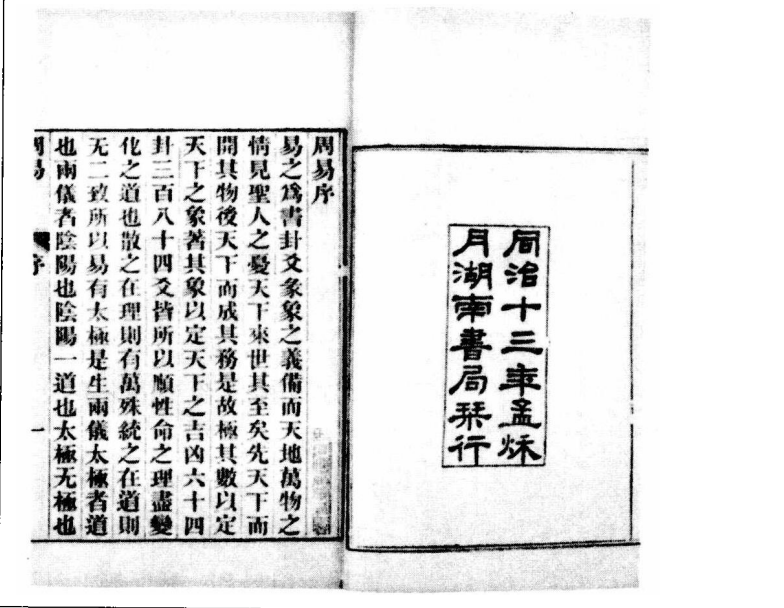 同治十三年孟秌
月湖南書局栞行
周易序
易之爲書卦爻彖象之義備而天地萬物之
情見聖人之憂天下來世其至矣先天下而
開其物後天下而成其務是故極其數以定
天下之象著其象以定天下之吉凶六十四
卦三百八十四爻皆所以順性命之理盡變
化之道也散之在理則有萬殊統之在道則
无二致所以易有太極是生兩儀太極者道
也兩儀者陰陽也陰陽一道也太極无極也
周易 序 一